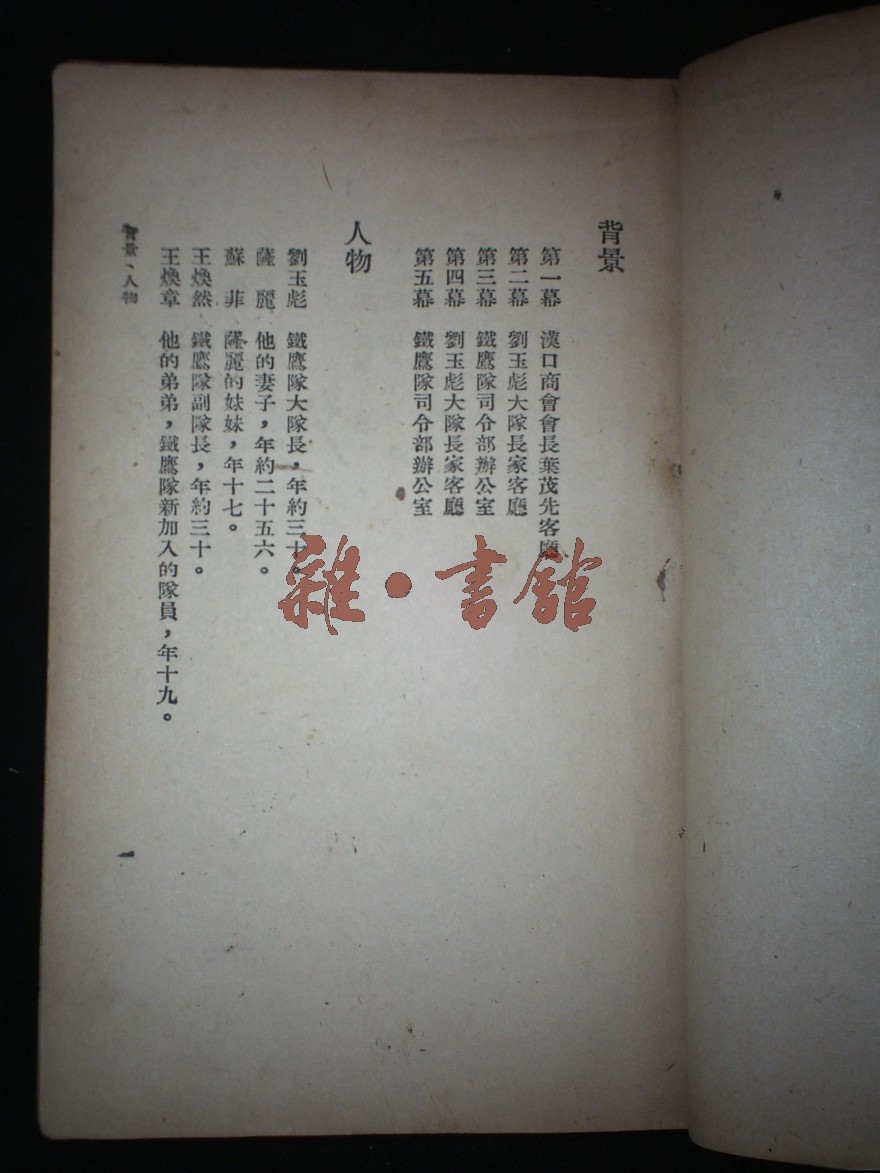 背景
第一幕　漢口商會會長葉茂先客廳
第二幕　劉玉彪大隊長家客廳
第三幕　鐵鷹隊司令部辦公室
第四幕　劉玉彪大隊長家客廳
第五幕　鐵鷹隊司令部辦公室
人物
劉玉彪　鐵鷹隊大隊長，年約三十。
薩　麗　他的妻子，年約二十五六。
蘇　菲　薩麗的妹妹，年十七。
王煥然　鐵鷹隊副隊長，年約三十。
王煥章　他的弟弟，鐵鷹隊新加入的隊員，年十九。
背景、人物
一
雜·書館